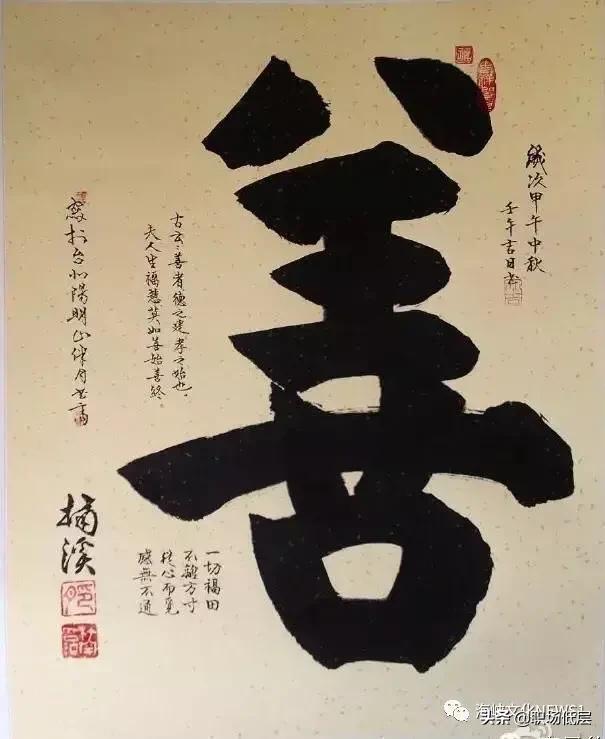 善
歲次甲午中秋
壬午吉日書
古云：善者德之建孝之始也，
夫人生福慧莫如善始善終
寫於台北陽明山伴月書齋
楠溪
一切福田
不離方寸
從心而覓
感無不通
海峡文化NEWS1
头条 @职场低层